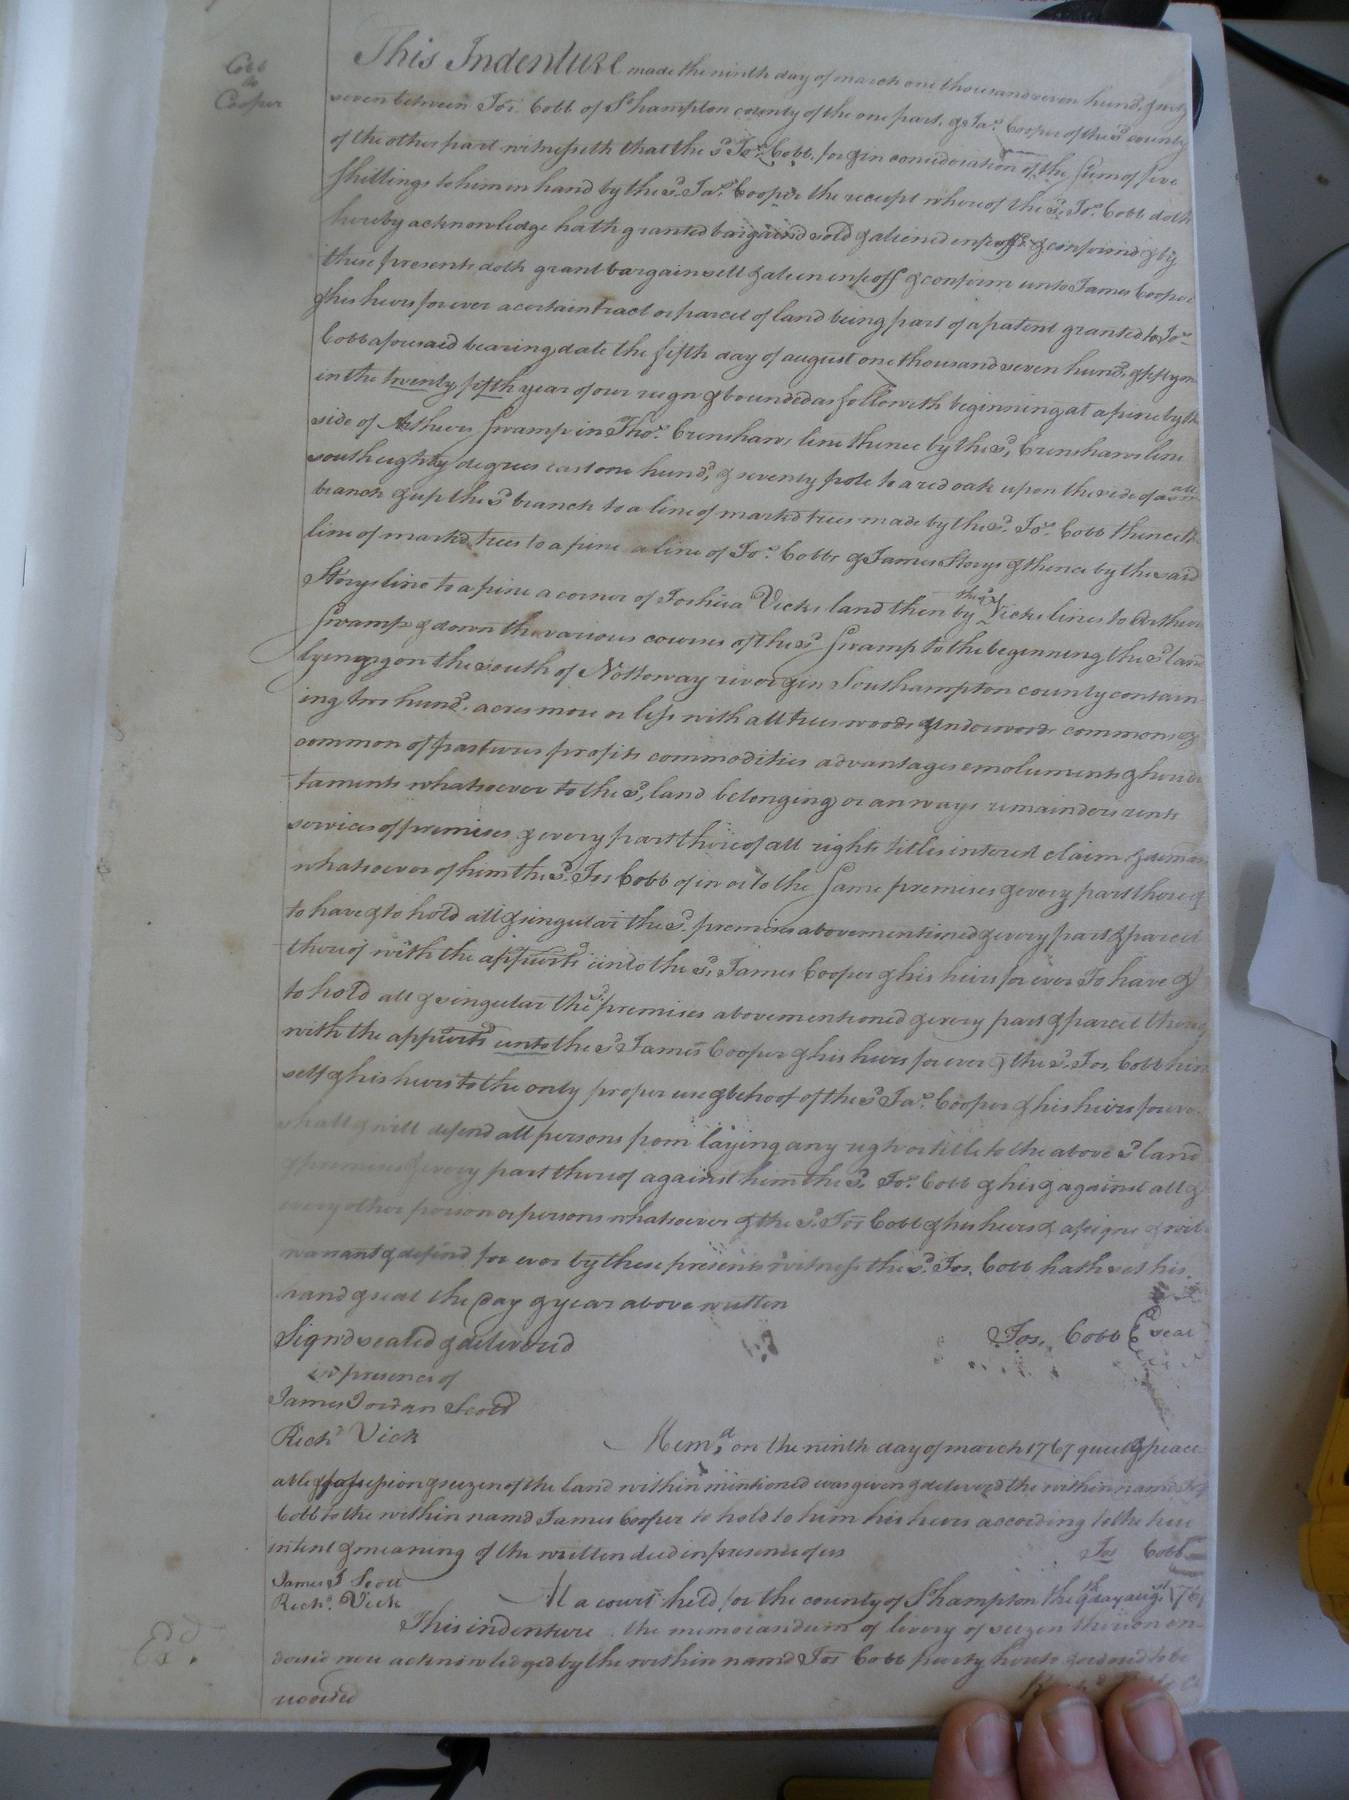 Cobb
to
Cooper
This Indenture made the ninth day of march one thousand seven hund.d & sixty
seven between Jos. Cobb of S.hampton county of the one part, & Ja.s Cooper of the s.d county
of the other part witnesseth that the s.d Jos. Cobb, for & in consideration of the sum of five
shillings to him in hand by the s.d Ja.s Cooper the receipt whereof the s.d Jos. Cobb doth
hereby acknowledge hath granted bargaind sold & aliened enfeoff.d & confirmed & by
these presents doth grant bargain sell & alien enfeoff & confirm unto James Cooper
& his heirs for ever a certain tract or parcel of land being part of a patent granted to Jos.
Cobb aforesaid bearing date the fifth day of august one thousand seven hund.d & fifty one
in the twenty fifth year of our reign & bounded as followeth beginning at a pine by the
side of Arthurs Swamp in Tho.s Crenshaws line thence by the s.d Crenshaws line
south eighty degrees east one hund.d & seventy pole to a red oak upon the side of a small
branch & up the s.d branch to a line of markd trees made by the s.d Jos. Cobb thence th
line of markd trees to a pine a line of Jos. Cobbs & James Storys & thence by the said
Storys line to a pine a corner of Joshua Vicks land then by the s.d Vicks lines to Arthurs
Swamp & down the various courses of the s.d Swamp to the beginning the s.d land
lyeing on the south of Nottoway river & in Southampton county contain
ing two hund.d acres more or less with all trees woods & underwoods commons &
common of pastures profits commodities advantages emoluments & heredi
taments whatsoever to the s.d land belonging or anways remainders rents
services of premises & every part thereof all rights titles interest claim & deman
whatsoever of him the s.d Jos Cobb of in or to the Same premises & every part thereof
to have & to hold all & singular the s.d premises abovementioned & every part & parcel
thereof with the appurts unto the s.d James Cooper & his heirs for ever To have &
to hold all & singular the s.d premises abovementioned & every part & parcel thereof
with the appurts unto the s.d James Cooper & his heirs for ever & the s.d Jos. Cobb him
self & his heirs to the only proper use & behoof of the s.d Ja.s Cooper & his heirs forever
shall & will defend all persons from laying any right or title to the above s.d land
& premises & every part thereof against him the s.d Jos. Cobb & his & against all &
every other person or persons whatsoever & the s.d Jos Cobb & his heirs & assigns & will
warrant & defend for ever by these presents witness the s.d Jos. Cobb hath set his
hand & seal the Day & year above written
Sign'd sealed & delivered Jos. Cobb seal
in presence of
James Jordan Scott
Rich.d Vick Mem.d on the ninth day of march 1767 quiet & peace
able possession & seizen of the land within mentioned was given & deliverd the within namd Jos
Cobb to the within namd James Cooper to hold to him his heirs according to the true
intent & meaning of the written deed in presence of us Jos Cobb
James J Scott
Rich.d Vick At a court held for the county of S.hampton the day aug.t 176
This indenture the memorandum of livery of seizen thereon en-
dorsed were acknowledged by the within namd Jos Cobb party hereto & ordered to be
recorded
Ex.d